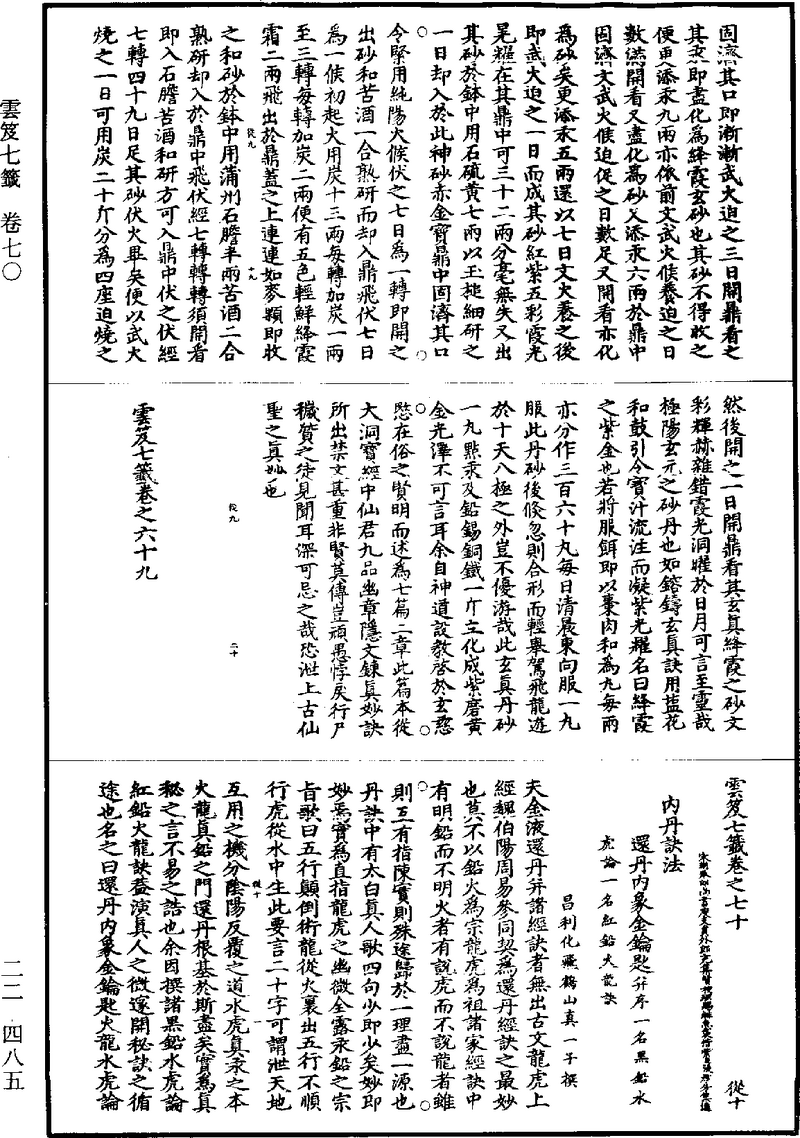 雲笈七籤　卷七〇
二二　四八五
固濟其口即漸漸武火迫之三日開鼎看之
其汞即盡化為絳霞玄砂也其砂不得收之
便更添汞九兩亦依前文武火候養迫之日
數滿開看又盡化為砂又添汞六兩於鼎中
固濟文武火候迫促之日數足又開看亦化
為砂矣更添汞五兩還以七日文火養之後
即武火迫之一日而成其砂紅紫五彩霞光
晃耀在其鼎中可三十二兩分毫無失又出
其砂於鉢中用石硫黃七兩以玉槌細研之
一日却入於此神砂赤金寶鼎中固濟其口
令緊用純陽火候伏之七日為一轉即開之
出砂和苦酒一合熟研而却入鼎飛伏七日
為一候初起火用炭十三兩每轉加炭一兩
至三轉每轉加炭二兩便有五色輕鮮絳霞
霜二兩飛出於鼎蓋之上連連如麥顆即收
從九　十九
之和砂於鉢中用蒲州石膽半兩苦酒二合
熟研却入於鼎中飛伏經七轉轉轉須開看
即入石膽苦酒和研方可入鼎中伏之伏經
七轉四十九日足其砂伏火畢矣便以武火
燒之一日可用炭二十斤分為四座迫燒之
然後開之一日開鼎看其玄真絳霞之砂文
彩輝赫雜錯霞光洞曜於日月可言至靈哉
極陽玄元之砂丹也如鎔鑄玄真訣用鹽花
和鼓引令寶汁流注而凝紫光耀名曰絳霞
之紫金也若將服餌即以棗肉和為丸每兩
亦分作三百六十丸每日清晨東向服一丸
服此丹砂後倏忽則合形而輕舉駕飛龍遊
於十天八極之外豈不優游哉此玄真丹砂
一丸點汞及鉛錫銅鐵一斤立化成紫磨黃
金光澤不可言耳余自神道設教啓於玄慈
愍在俗之賢明而述為七篇二章此篇本從
大洞寶經中仙君九品幽章隱文鍊真妙訣
所出禁文甚重非賢莫傳豈頑愚悖戾行尸
穢質之徒見聞耳深可忌之哉恐泄上古仙
聖之真妙也
從九　二十
雲笈七籤卷之六十九
雲笈七籤卷之七十　從十
內丹訣法
還丹內象金鑰匙并序一名黑鉛水
虎論一名紅鉛火龍訣
昌利化飛鶴山真一子撰
夫金液還丹并諸經訣者無出古文龍虎上
經魏伯陽周易參同契為還丹經訣之最妙
也莫不以鉛火為宗龍虎為祖諸家經訣中
有明鉛而不明火者有說虎而不說龍者雖
則互有指陳實則殊途歸於一理盡一源也
丹訣中有太白真人歌四句少即少矣妙即
妙焉實為直指龍虎之幽微全露汞鉛之宗
旨歌曰五行顛倒術龍從火裏出五行不順
行虎從水中生此要言二十字可謂泄天地
從十
互用之機分陰陽反覆之道水虎真汞之本
火龍真鉛之門還丹根基於斯盡矣實為真
秘之言不易之誥也余因撰諸黑鉛水虎論
紅鉛火龍訣蓋演真人之微邃開秘訣之循
途也名之曰還丹內象金鑰匙火龍水虎論